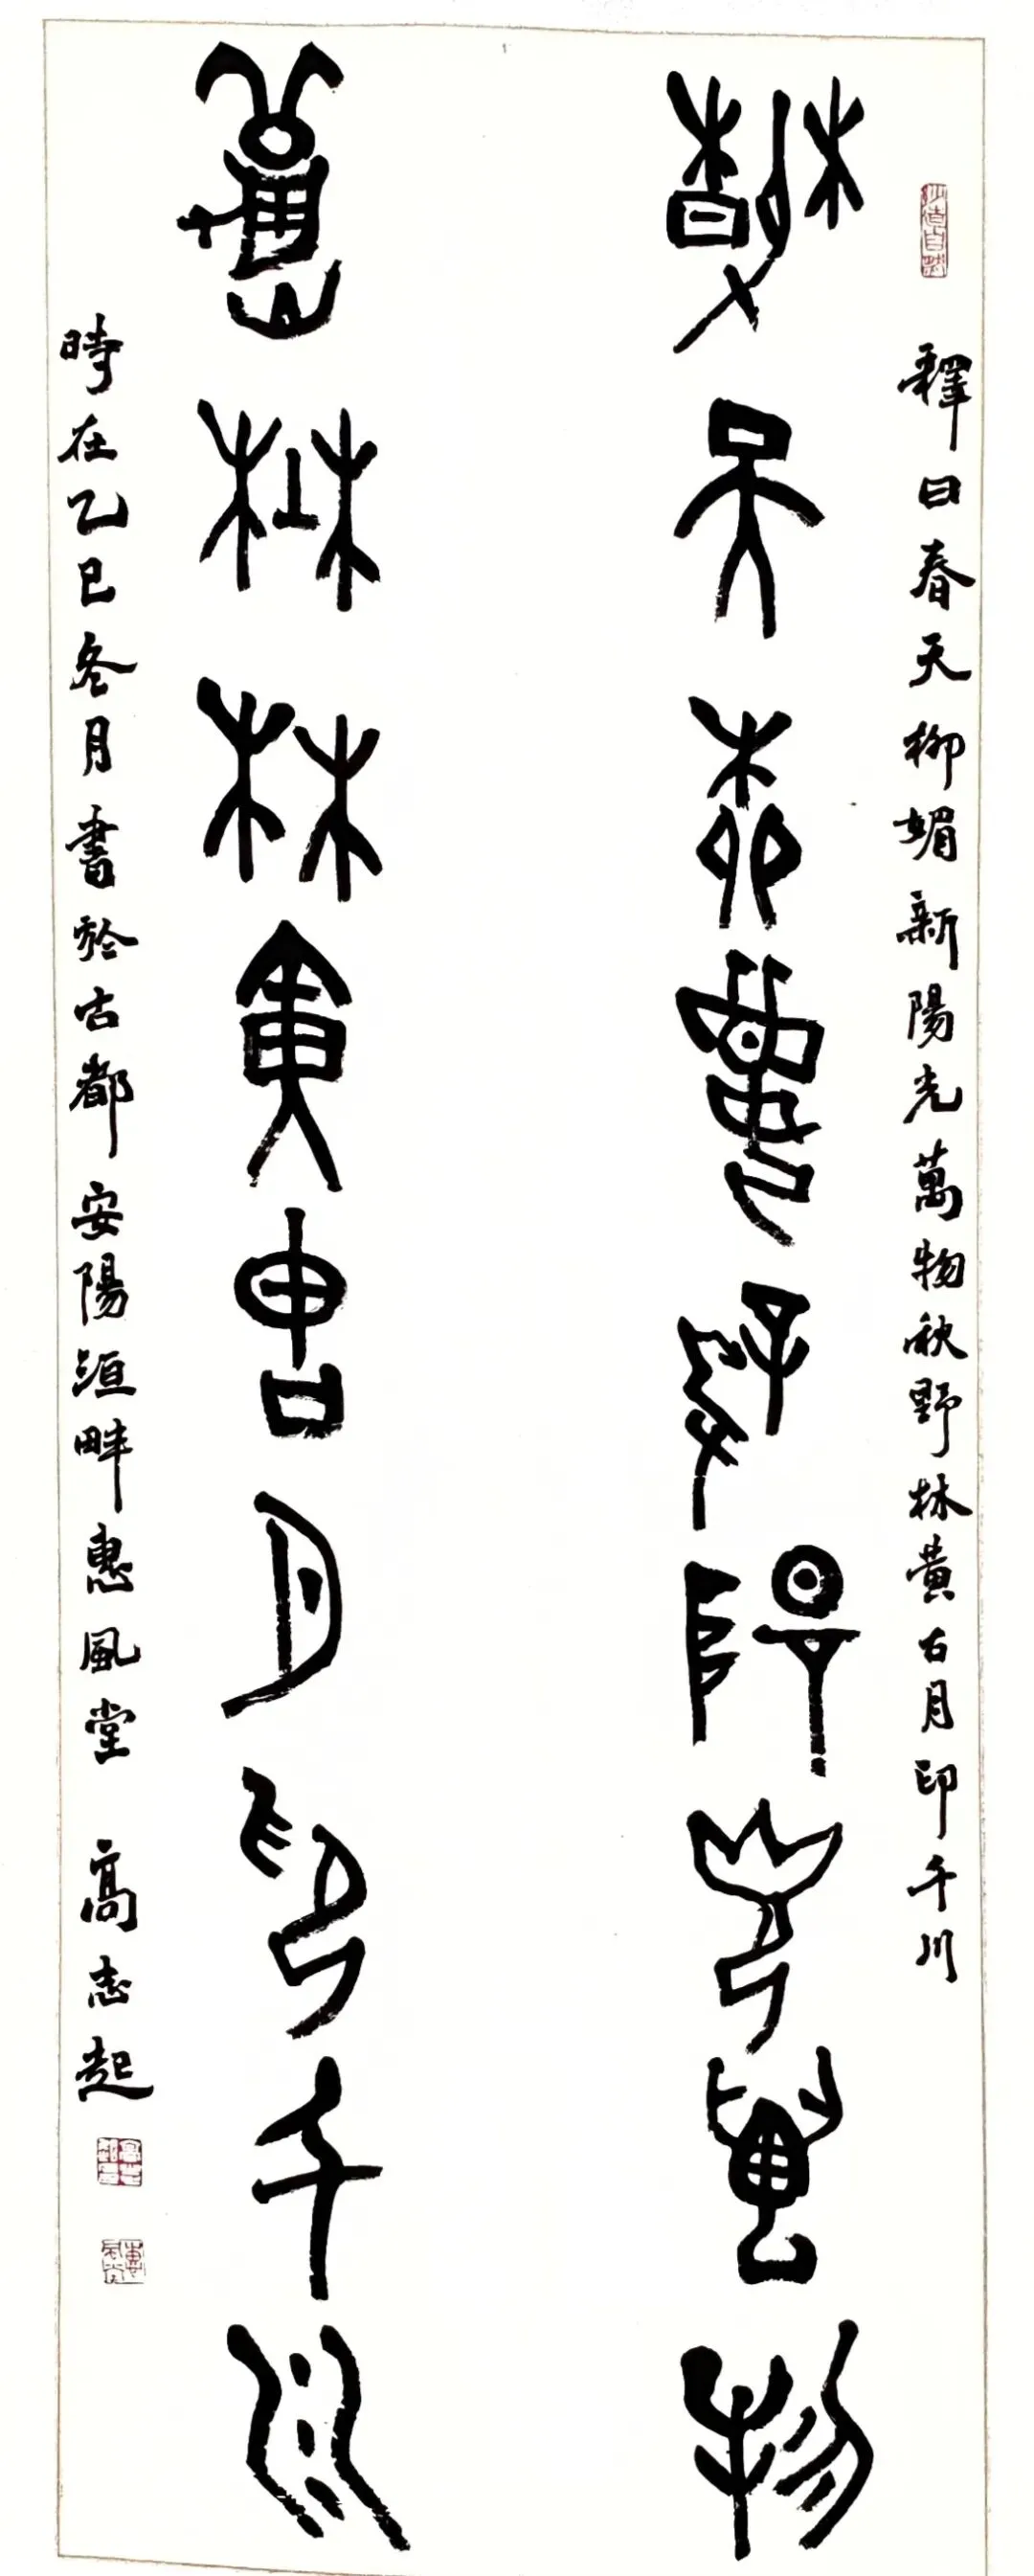 釋曰春天柳媚新陽光萬物秋野林黃古月印千川
春天柳媚新陽光萬物
秋野林黃古月印千川
時在乙巳冬月書於古都安陽洹畔惠風堂 高志起